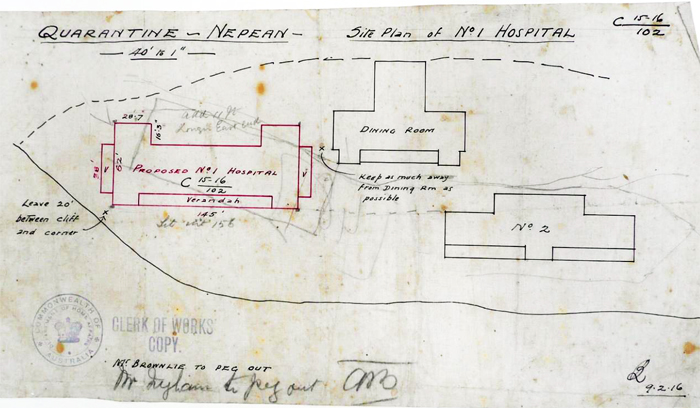 QUARANTINE - NEPEAN -
40' to 1"
Site Plan of No 1 HOSPITAL
C 15-16
102
20'.7
16'.3"
DINING ROOM
V
52'
PROPOSED No 1 HOSPITAL
V
C 15-16
102
Verandah
145'
Keep as much away
from Dining Rm as
possible
Leave 20'
between cliff
and corner
No 2
COMMONWEALTH OF
AUSTRALIA
CLERK OF WORKS
COPY.
Mr BROWNLIE TO PEG OUT
Mr to peg out
9.2.16